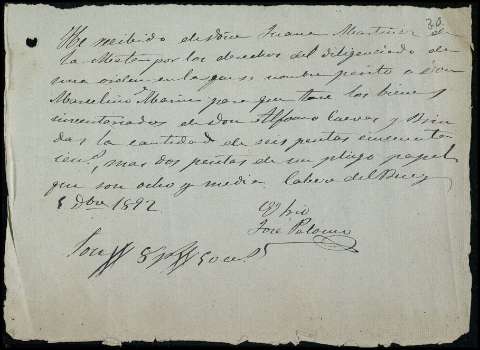 30.
He recibido de doña Juana Martinez de
la Mata por los derechos del diligenciado de
una orden en la que se nombra perito a Don
Marcelino Marin para que tase los bienes
inventariados de don Alfonso Cuevas y Brin
das la cantidad de seis pesetas cincuenta
cens, mas dos pesetas de un pliego papel
que son ocho y media. Cabeza del Buey
8 Dbre 1892.
El Srio
José Palomo
Son 8 pts 50 cs